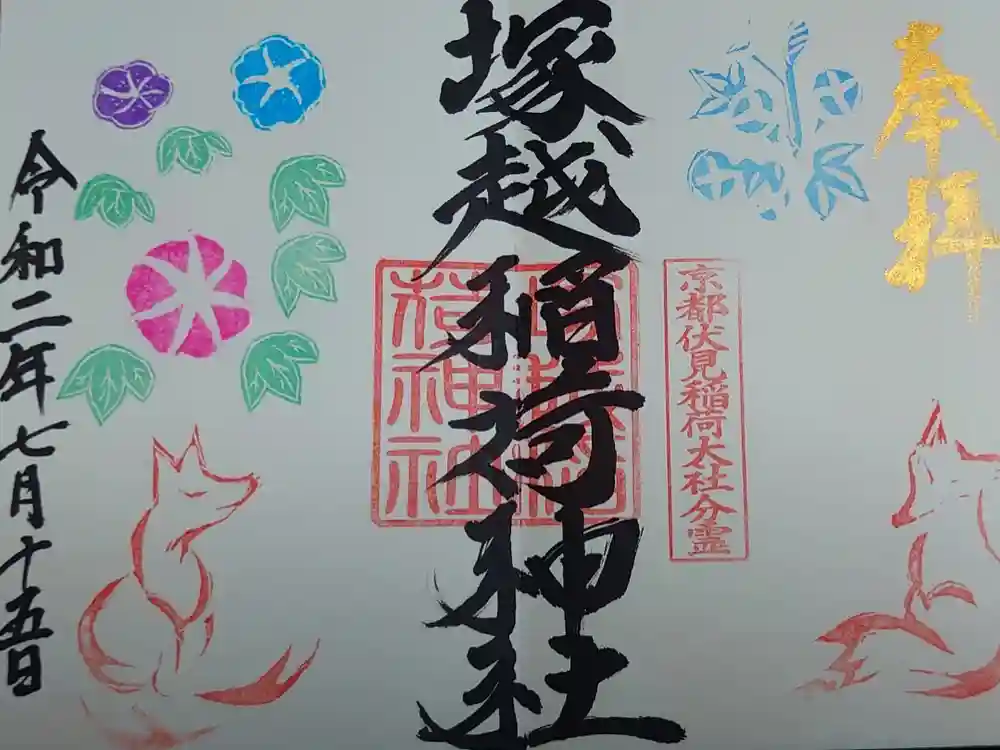 奉拝
京都伏見稲荷大社分霊
塚越稲荷神社
塚越稲荷神社
令和二年七月十五日